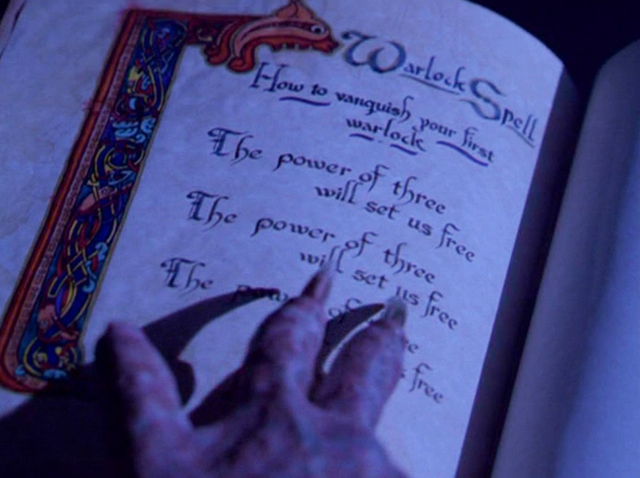 Warlock Spell
How to vanquish your first
warlock
The power of three
will set us free
The power of three
will set us free
The
free